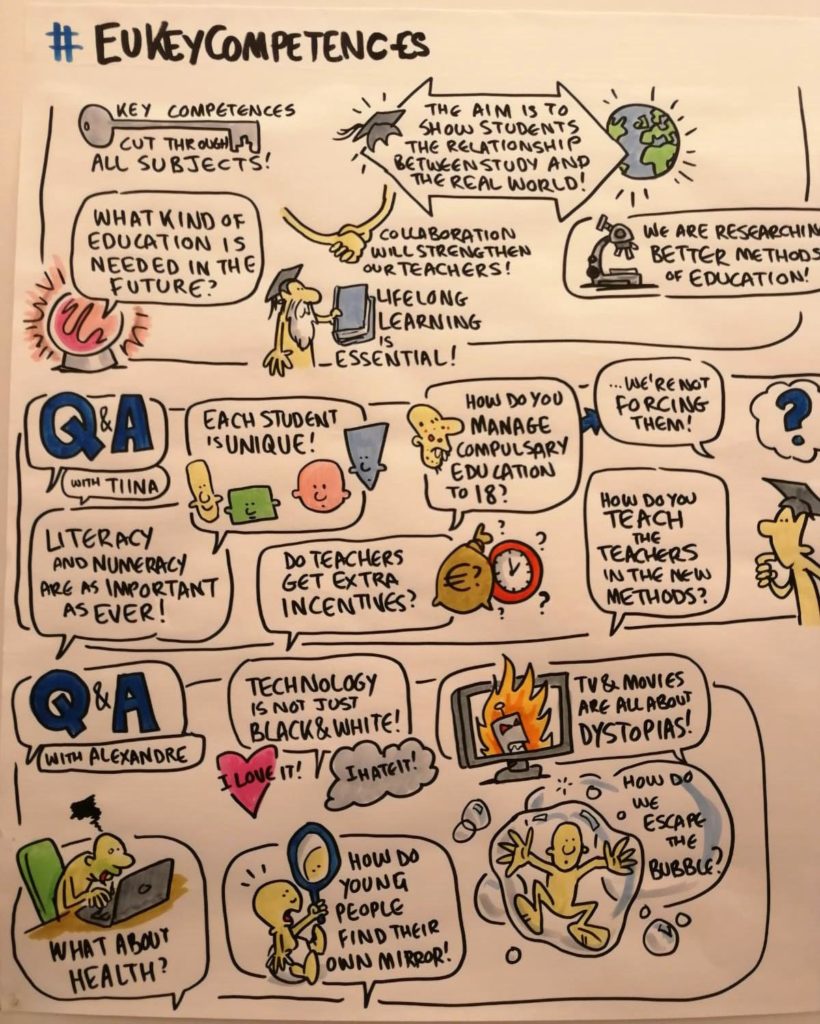 # EUKEYCOMPETENCES
KEY COMPETENCES
CUT THROUGH
ALL SUBJECTS!
THE AIM IS TO
SHOW STUDENTS
THE RELATIONSHIP
BETWEEN STUDY AND
THE REAL WORLD!
WHAT KIND OF
EDUCATION IS
NEEDED IN THE
FUTURE?
COLLABORATION
WILL STRENGTHEN
OUR TEACHERS!
WE ARE RESEARCHIN
BETTER METHODS
OF EDUCATION!
LIFELONG
LEARNING
IS
ESSENTIAL!
Q&A
WITH TIINA
EACH STUDENT
IS UNIQUE!
HOW DO YOU
MANAGE
COMPULSARY
EDUCATION
TO 18?
...WE'RE NOT
FORCING
THEM!
?
LITERACY
AND NUMERACY
ARE AS IMPORTANT
AS EVER!
DO TEACHERS
GET EXTRA
INCENTIVES?
€?
?
?
?
?
HOW DO YOU
TEACH
THE
TEACHERS
IN THE NEW
METHODS?
Q&A
WITH ALEXANDRE
TECHNOLOGY
IS NOT JUST
BLACK & WHITE!
I LOVE IT!
I HATE IT!
TV & MOVIES
ARE ALL ABOUT
DYSTOPIAS!
HOW DO
WE
ESCAPE
THE
BUBBLE?
WHAT ABOUT
HEALTH?
HOW DO
YOUNG
PEOPLE
FIND THEIR
OWN MIRROR!